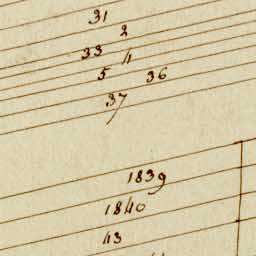 31
2
33
4
5 36
37
1839
1840
43